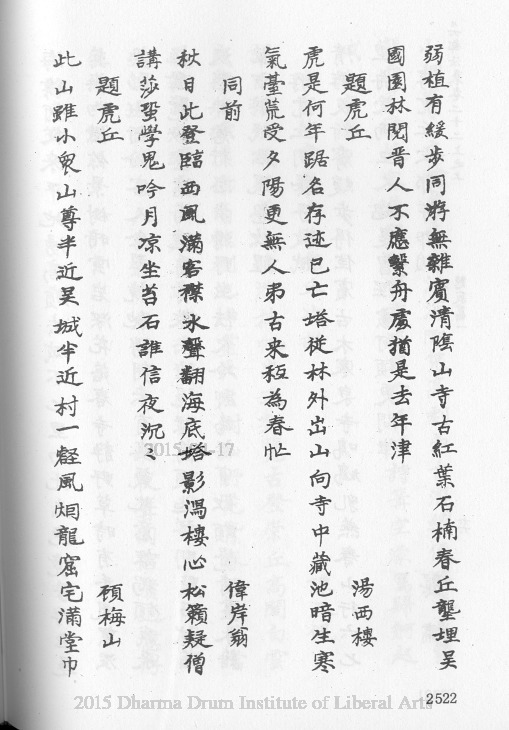 弱植有緩步同游無雜賓清陰山寺古紅葉石楠春丘壟埋吳
國園林閱晉人不應繫舟處猶是去年津
題虎丘　湯西樓
虎是何年踞名存迹已亡塔從林外出山向寺中藏池暗生寒
氣臺荒受夕陽更無人弔古來秖為春忙
同前　偉岸翁
秋日此登臨西風滿客襟水聲翻海底塔影瀉樓心松籟疑僧
講莎蛩學鬼吟月凉坐苔石誰信夜沉〻
題虎丘　顧梅山
此山雖小衆山尊半近吳城半近村一壑風烟龍窟宅滿堂巾
2522
2015-04-17
2015 Dharma Drum Institute of Liberal Arts